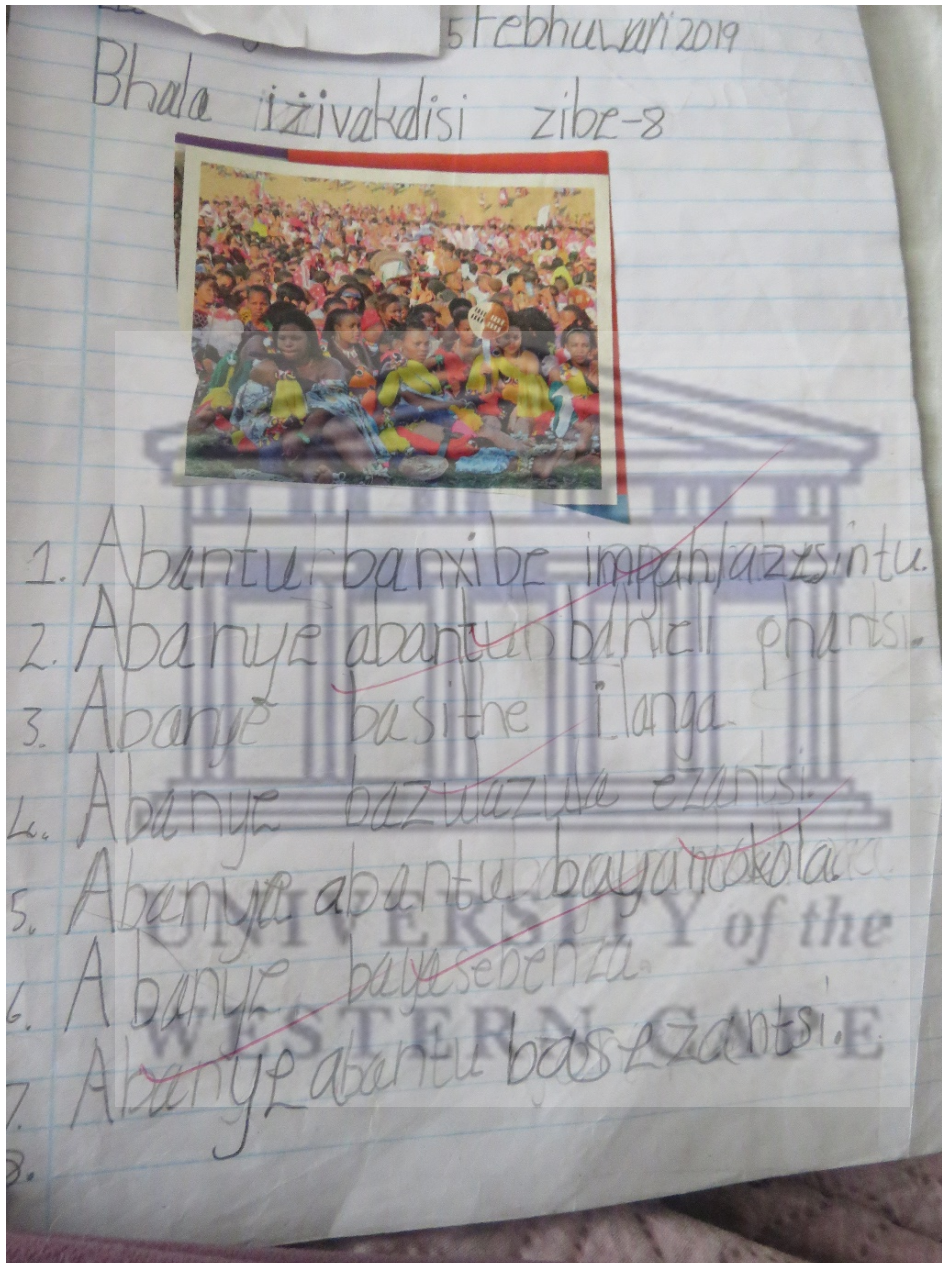 5 Febhuwari 2019
Bhala izivakalisi zibe-8
1. Abantu banxibe impahlazesintu.
2. Abanye abantu bahleli phantsi.
3. Abanye basithe ilanga.
4. Abanye ezantsi.
5. Abanye abantu
6. Abanye bayasebenza.
7. Abanye abantu basezantsi.
8.
UNIVERSITY of the
WESTERN CAPE